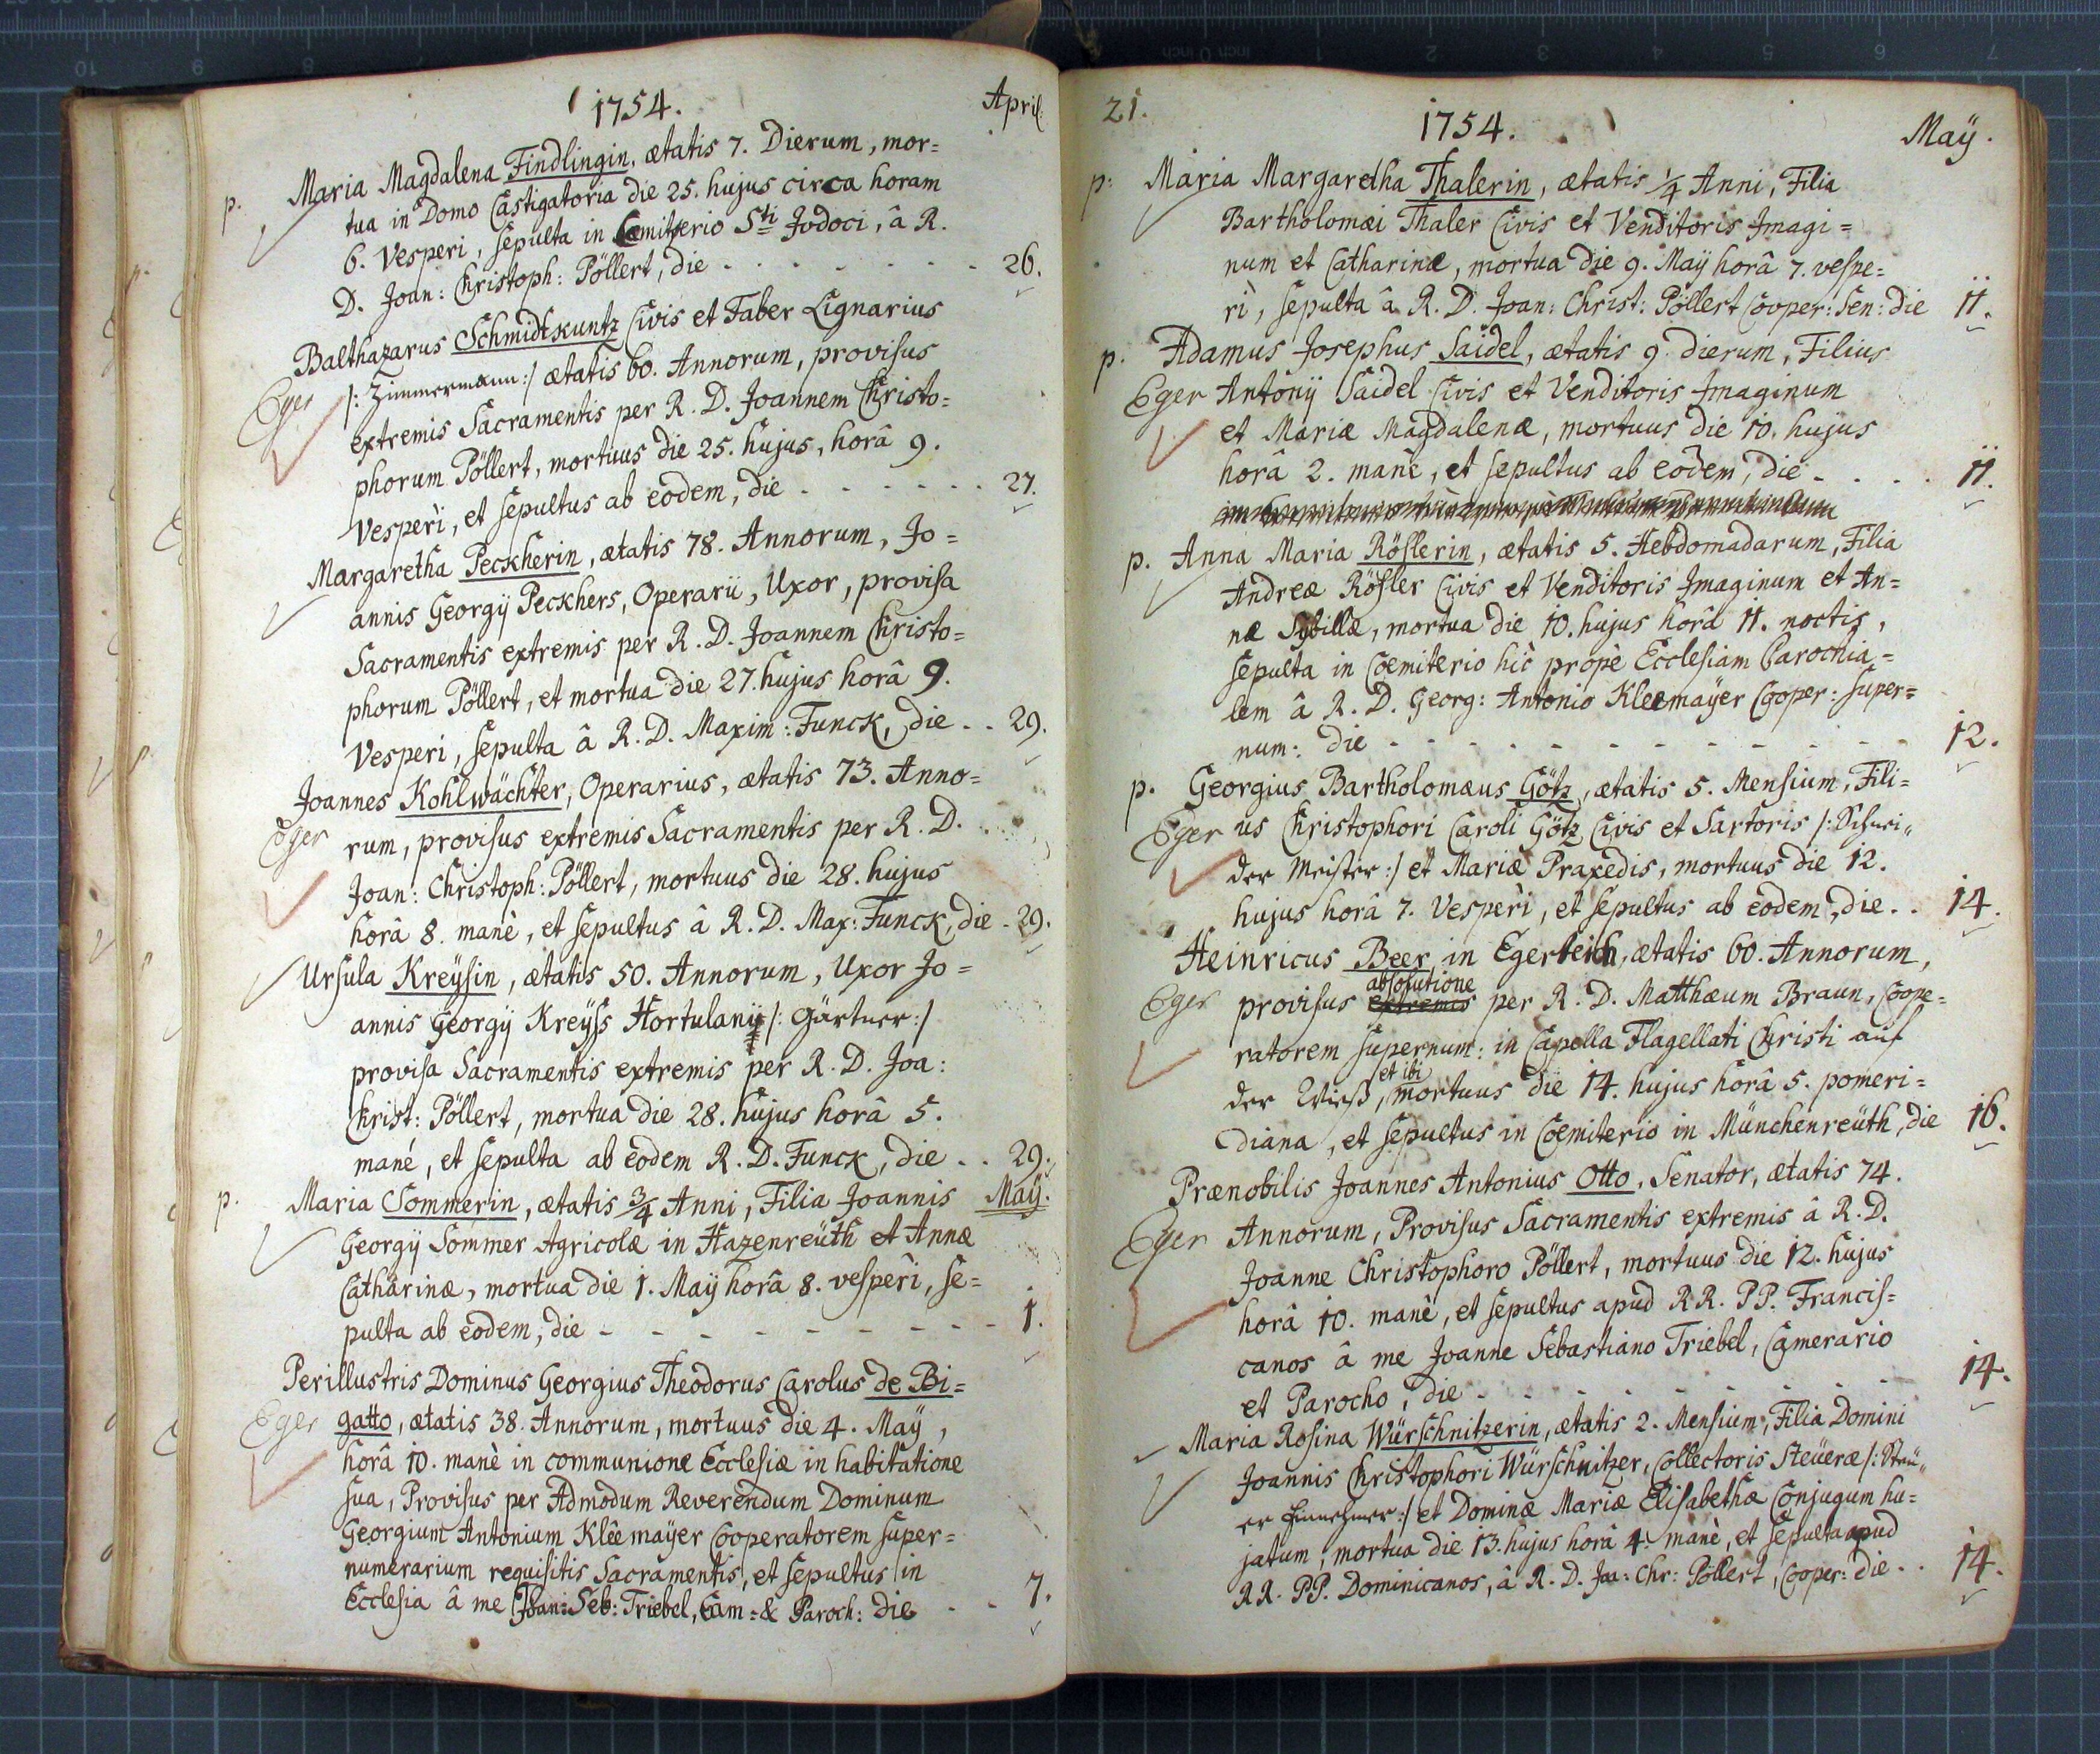 1754.
April:
p. Maria Magdalena Findlingin, ætatis 7. Dierum, mor=
tua in Domo Castigatoria die 25. hujus circa horam
6. Vesperi, sepulta in Cœmiterio Sti Jodoci, â R.
D. Joan: Christoph: Pöllert, die - - - - - - - 26.
Balthazarus Schmidtkuntz Civis et Faber Lignarius
Eger /: Zimmermann :/ ætatis 60. Annorum, provisus
extremis Sacramentis per R. D. Joannem Christo=
phorum Pöllert, mortuus die 25. hujus, horâ 9.
Vesperì, et sepultus ab eodem, die - - - - - - 27.
Margaretha Peckherin, ætatis 78. Annorum, Jo=
annis Georgÿ Peckhers, Operarii, Uxor, provisa
Sacramentis extremis per R. D. Joannem Christo=
phorum Pöllert, et mortua die 27. hujus horâ 9.
Vesperi, sepulta â R. D. Maxim: Funck, die - - 29.
Joannes Kohlwächter, Operarius, ætatis 73. Anno=
Eger rum, provisus extremis Sacramentis per R. D.
Joan: Christoph: Pöllert, mortuus die 28. hujus
horâ 8. manè, et sepultus â R. D. Max: Funck, die - 29.
Ursula Kreÿsin, ætatis 50. Annorum, Uxor Jo=
annis Georgÿ Kreÿss Hortulanÿ /: Gärtner :/
provisa Sacramentis extremis per R. D. Joa:
Christ: Pöllert, mortua die 28. hujus horâ 5.
manè, et sepulta ab eodem R. D. Funck, die - - 29.
p. Maria Sommerin, ætatis 3/4 Anni, Filia Joannis Maÿ.
Georgÿ Sommer Agricolæ in Hazenreüth et Annæ
Catharinæ, mortua die 1. Maÿ horâ 8. vesperì, se=
pulta ab eodem, die - - - - - - - - 1.
Perillustris Dominus Georgius Theodorus Carolus de Bi=
Eger gatto, ætatis 38. Annorum, mortuus die 4. Maÿ,
horâ 10. manè in communione Ecclesiæ in habitatione
sua, Provisus per Admodum Reverendum Dominum
Georgium Antonium Kleemaÿer Cooperatorem super=
numerarium requisitis Sacramentis, et sepultus in
Ecclesia â me Joan: Seb: Triebel, Cam: & Paroch: die - - 7.
21.
1754.
Maÿ.
p: Maria Margaretha Thalerin, ætatis 1/4 Anni, Filia
Bartholomæi Thaler Civis et Venditoris Imagi=
num et Catharinæ, mortua die 9. Maÿ horâ 7. vespe=
rì, sepulta â R. D. Joan: Christ: Pöllert Cooper: Sen: die 11.
p. Adamus Josephus Saidel, ætatis 9. dierum, Filius
Eger Antonÿ Saidel Civis et Venditoris Imaginum
et Mariæ Magdalenæ, mortuus die 10. hujus
horâ 2. manè, et sepultus ab eodem, die - - - - 11.
p. Anna Maria Röslerin, ætatis 5. Hebdomadarum, Filia
Andreæ Rösler Civis et Venditoris Imaginum et An=
næ Sybillæ, mortua die 10. hujus horâ 11. noctis,
sepulta in Coemiterio hic propè Ecclesiam Parochia=
lem â R. D. Georg: Antonio Kleemaÿer Cooper: super=
num: die - - - - - - - - - - - 12.
p. Georgius Bartholomæus Götz, ætatis 5. Mensium, Fili=
Eger us Christophori Caroli Götz Civis et Sartoris /: Schnei„
der Meister :/ et Mariæ Praxedis, mortuus die 12.
hujus horâ 7. Vesperì, et sepultus ab eodem, die - - 14.
Heinricus Beer in Egerteich, ætatis 60. Annorum,
absolutione
Eger provisus extremis per R. D. Matthæum Braun, Coope=
ratorem supernum: in Capella Flagellati Christi auf
et ibi
der Wieß, mortuus die 14. hujus horâ 5. pomeri=
diana, et sepultus in Coemiterio in Münchenreüth, die 16.
Prænobilis Joannes Antonius Otto, Senator, ætatis 74.
Eger Annorum, Provisus Sacramentis extremis â R. D.
Joanne Christophoro Pöllert, mortuus die 12. hujus
horâ 10. manè, et sepultus apud RR. PP. Francis=
canos â me Joanne Sebastiano Triebel, Camerario
et Parocho, die - - - - - - - - 14.
Maria Rosina Würschnitzerin, ætatis 2. Mensium, Filia Domini
Joannis Christophori Würschnitzer, Collectoris Steüeræ /: Steü„
er Einnehmer :/ et Dominæ Mariæ Elisabethæ Conjugum hu=
jatum, mortua die 13. hujus horâ 4. manè, et sepulta apud
RR. PP. Dominicanos, â R. D. Joa: Chr: Pöllert, Cooper: die - - 14.